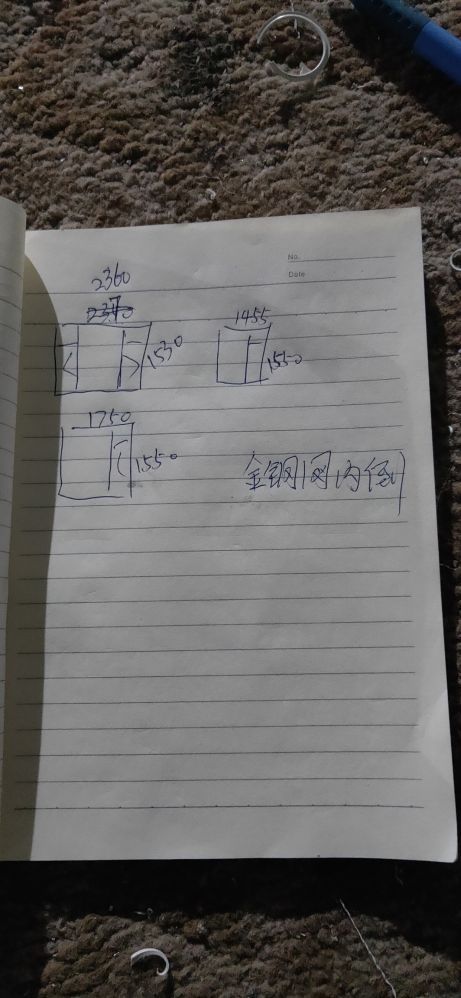 No.
Date
2360
1455
1530
1550
1750
1550
金钢网内倒